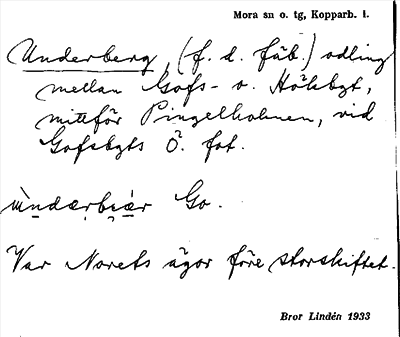 Mora sn o. tg, Kopparb. l.
Underberg, (f. d. fäb.) odling
mellan Gofs- o. Hökbgt,
mittför Pingelholmen, vid
Gofsbgts Ö. fot.
Go.
Var Norets ägor före storskiftet.
Bror Lindén 1933